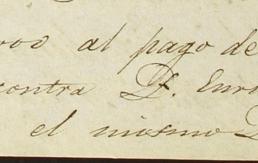 al pago de
contra D. Enri
el mismo D